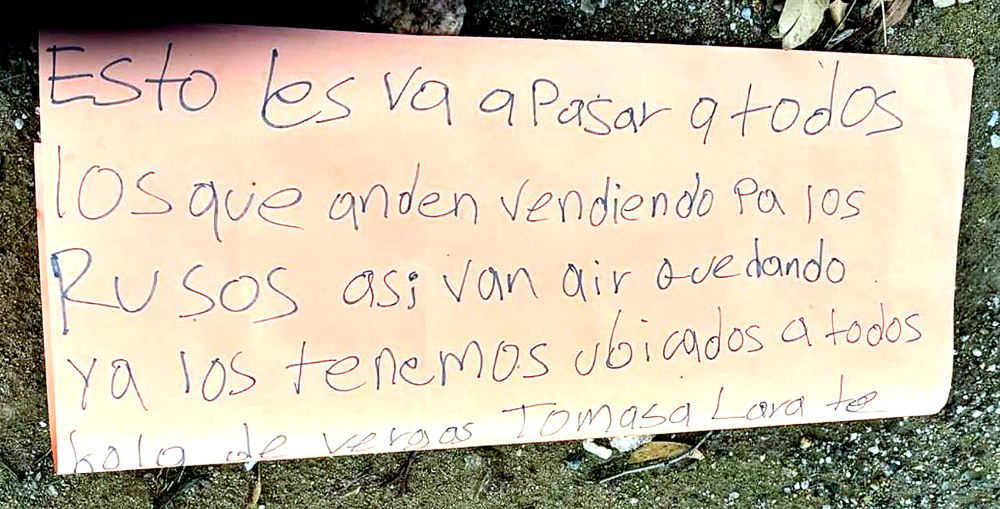 Esto les va a Pasar a todos
los que anden vendiendo Pa los
RUSOS asi van air quedando
ya los tenemos ubicados a todos
bola de vergas Tomasa Lara te